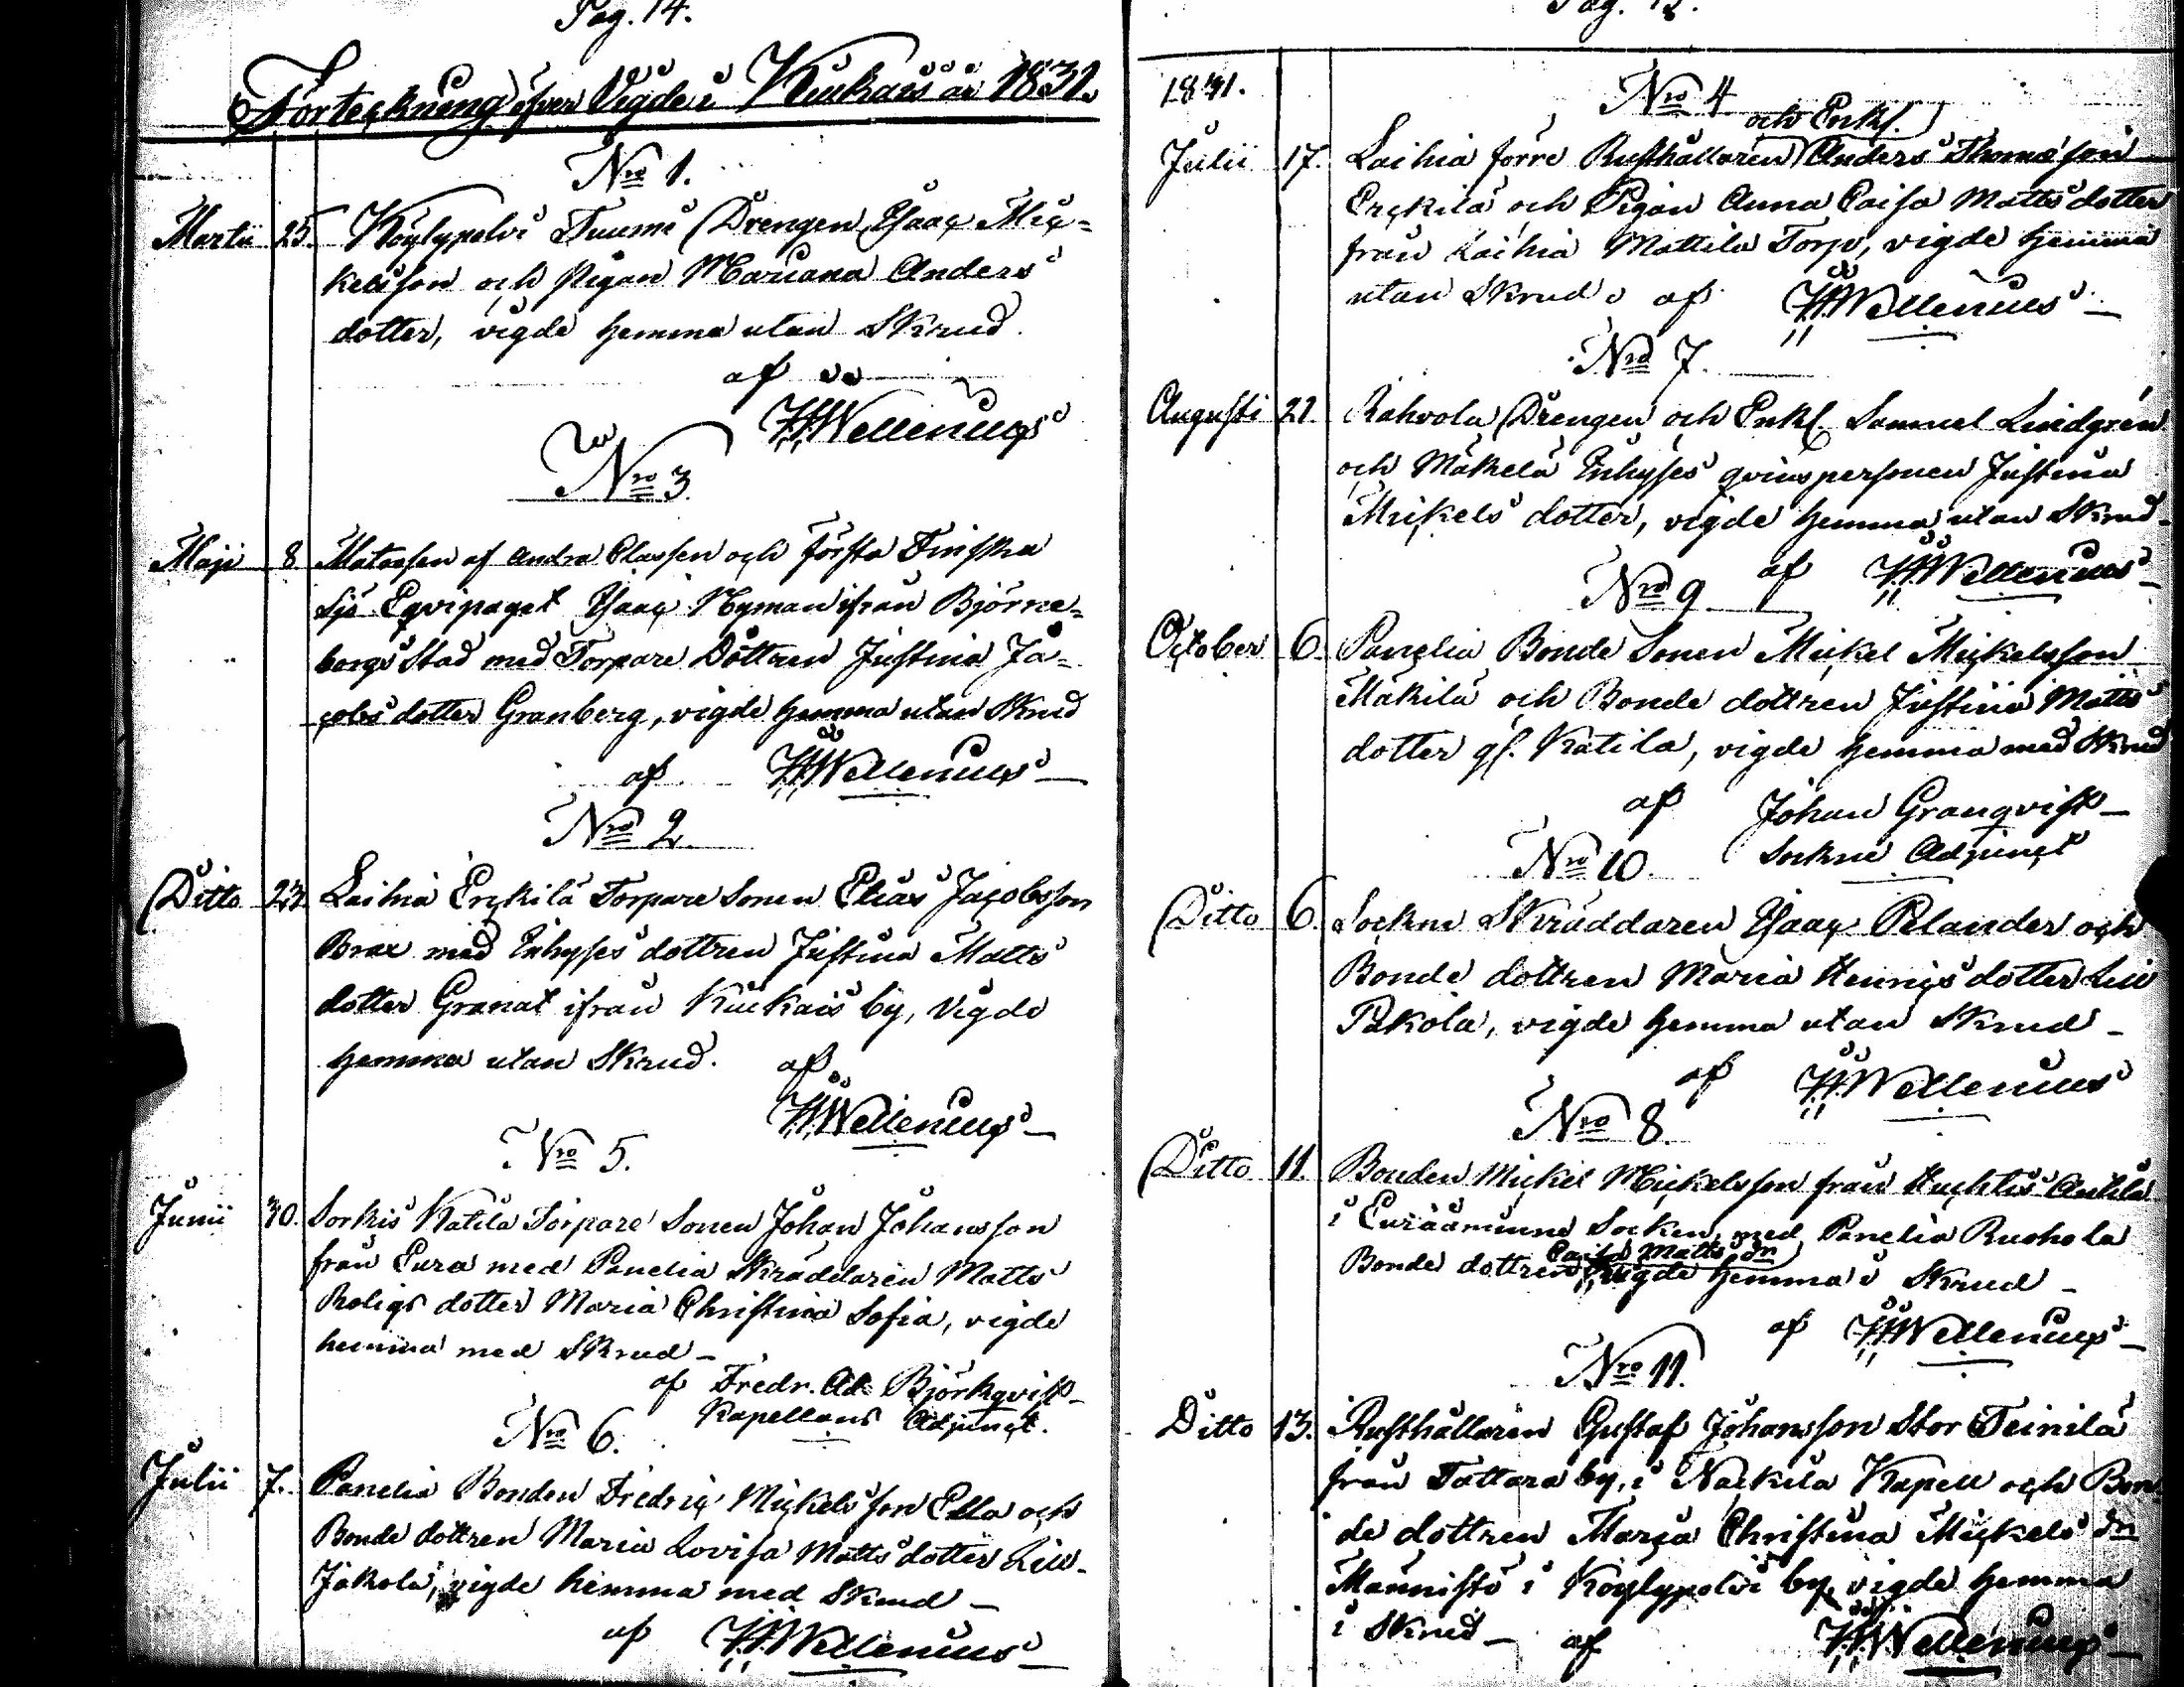 Pag. 14.
Förteckning öfver Vigde i Kiukais år 1831.
Nro 1.
Martii 25. Köylypolvi Tuumi Drengen Isaac Mic=
kelsson och Pigan Mariana Anders
dotter, vigde hemma utan Skrud.
af
HWellenius
Nro 3
Maji 8 Matrosen af andra Classen och första Finska
Sjö Eqvipaget Isaac Nyman ifrån Björne=
borgs Stad med Torpare Dottren Justina Ja=
cobs dotter Granberg, vigde hemma utan Skrud
af HWellenius
Nro 2.
Ditto 23. Laihia Erckilä Torpare Sonen Elias Jacobsson
Brax med Inhyses dottren Justina Matts
dotter Granat ifrån Kiukais by, Vigde
hemma utan Skrud. af
HWellenius
Nro 5.
Junii 30. Sorkis Katila Torpare Sonen Johan Johansson
från Eura med Panelia Skräddaren Matts
Roligs dotter Maria Christina Sofia, vigde
hemma med Skrud
af Fredr. Ad. Björkqvist
Kapellans Adjunct.
Nro 6.
Julii 7. Panelia Bonden Fredric Mickelsson Ella och
Bonde dottren Maria Lovisa Matts dotter Lill
Jakola, vigde hemma med Skrud
af HWellenius
1831.
Nro 4
och Enkl.
Julii 17. Laihia förre Rusthållaren Anders Thomæson
Erckilä och Pigan Anna Caisa Mattsdotter
från Laihia Mattila Torp, vigde hemma
utan Skrud af HWellenius
Nro 7.
Augusti 21. Rahvola Drengen och Enkl. Samuel Lindgrén
och Mäkelä Inhyses qvinspersonen Justina
Mickels dotter, vigde hemma utan Skrud
af HWellenius
Nro 9
October 6. Panelia Bonde Sonen Mickel Mickelsson
Mäkilä och Bonde dottren Justina Matts
dotter gl. Katila, vigde hemma med Skrud
af Johan Granqvist
Sockne Adjunct
Nro 10.
Ditto 6. Sockne Skräddaren Isaac Pelander och
Bonde dottren Maria Henricsdotter Lill
Pakola, vigde hemma utan Skrud
af HWellenius
Nro 8
Ditto 11. Bonden Mickel Mickelsson från Huchtis Antila
i Euraåminne Socken, med Panelia Ruohola
Caisa Matts dr
Bonde dottren vigde hemma i Skrud
af HWellenius
Nro 11.
Ditto 13. Rusthållaren Gustaf Johansson Stor Teinilä
från Tattara by, i Nackila Kapell och Bon
de dottren Maria Christina Mickels dr
Männistö i Köylypolvi by, vigde hemma
i Skrud af HWellenius